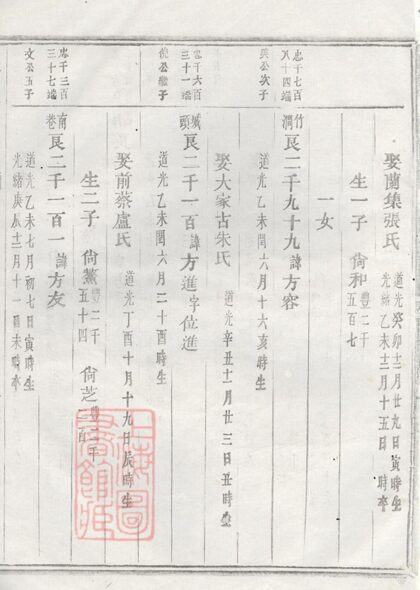 娶蘭集張氏 道光癸卯十二月廿九日寅時生
光緒乙未十二月十五日 時卒
生一子 尙和 豐二千五百七
一女
忠千七百八十四端
英公次子
竹澗
良二千九十九諱方容
道光乙未閏六月十六亥時生
娶大家古朱氏 道光辛丑十一月廿三日丑時生
忠千六百三十一端
優公繼子
城頭
良二千一百諱方進字位進
道光乙未閏六月二十酉時生
娶前蔡盧氏 道光丁酉十月十九日辰時生
生二子 尙鰲 豐二千五十四 尙芝 豐二千一百
忠千三百三十七端
文公五子
南巷
良二千一百一諱方友
道光乙未七月初七日寅時生
光緒庚辰十二月十一日未時卒
上海圖書館藏